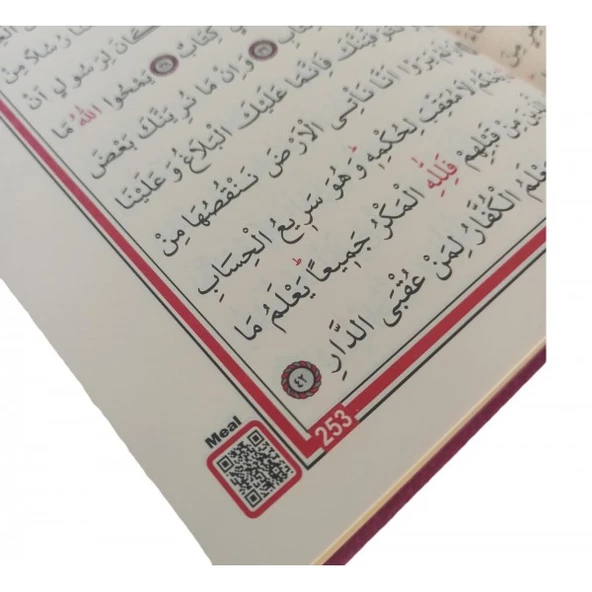 رُسُلًا مِنْ
كَانَ لِرَسُولٍ اَنْ
كِتَابٌ ٣٨ يَمْحُوا اللّٰهُ مَا
٣٩ وَاِنْ مَا نُرِيَنَّكَ بَعْضَ
فَاِنَّمَا عَلَيْكَ الْبَلَاغُ وَعَلَيْنَا
يَرَوْا اَنَّا نَأْتِى الْاَرْضَ نَنْقُصُهَا مِنْ
لَا مُعَقِّبَ لِحُكْمِهِ وَهُوَ سَرِيعُ الْحِسَابِ
الَّذِينَ مِنْ قَبْلِهِمْ فَلِلّٰهِ الْمَكْرُ جَمِيعًا يَعْلَمُ مَا
يَعْلَمُ الْكُفَّارُ لِمَنْ عُقْبَى الدَّارِ ٤٢
253
Meal